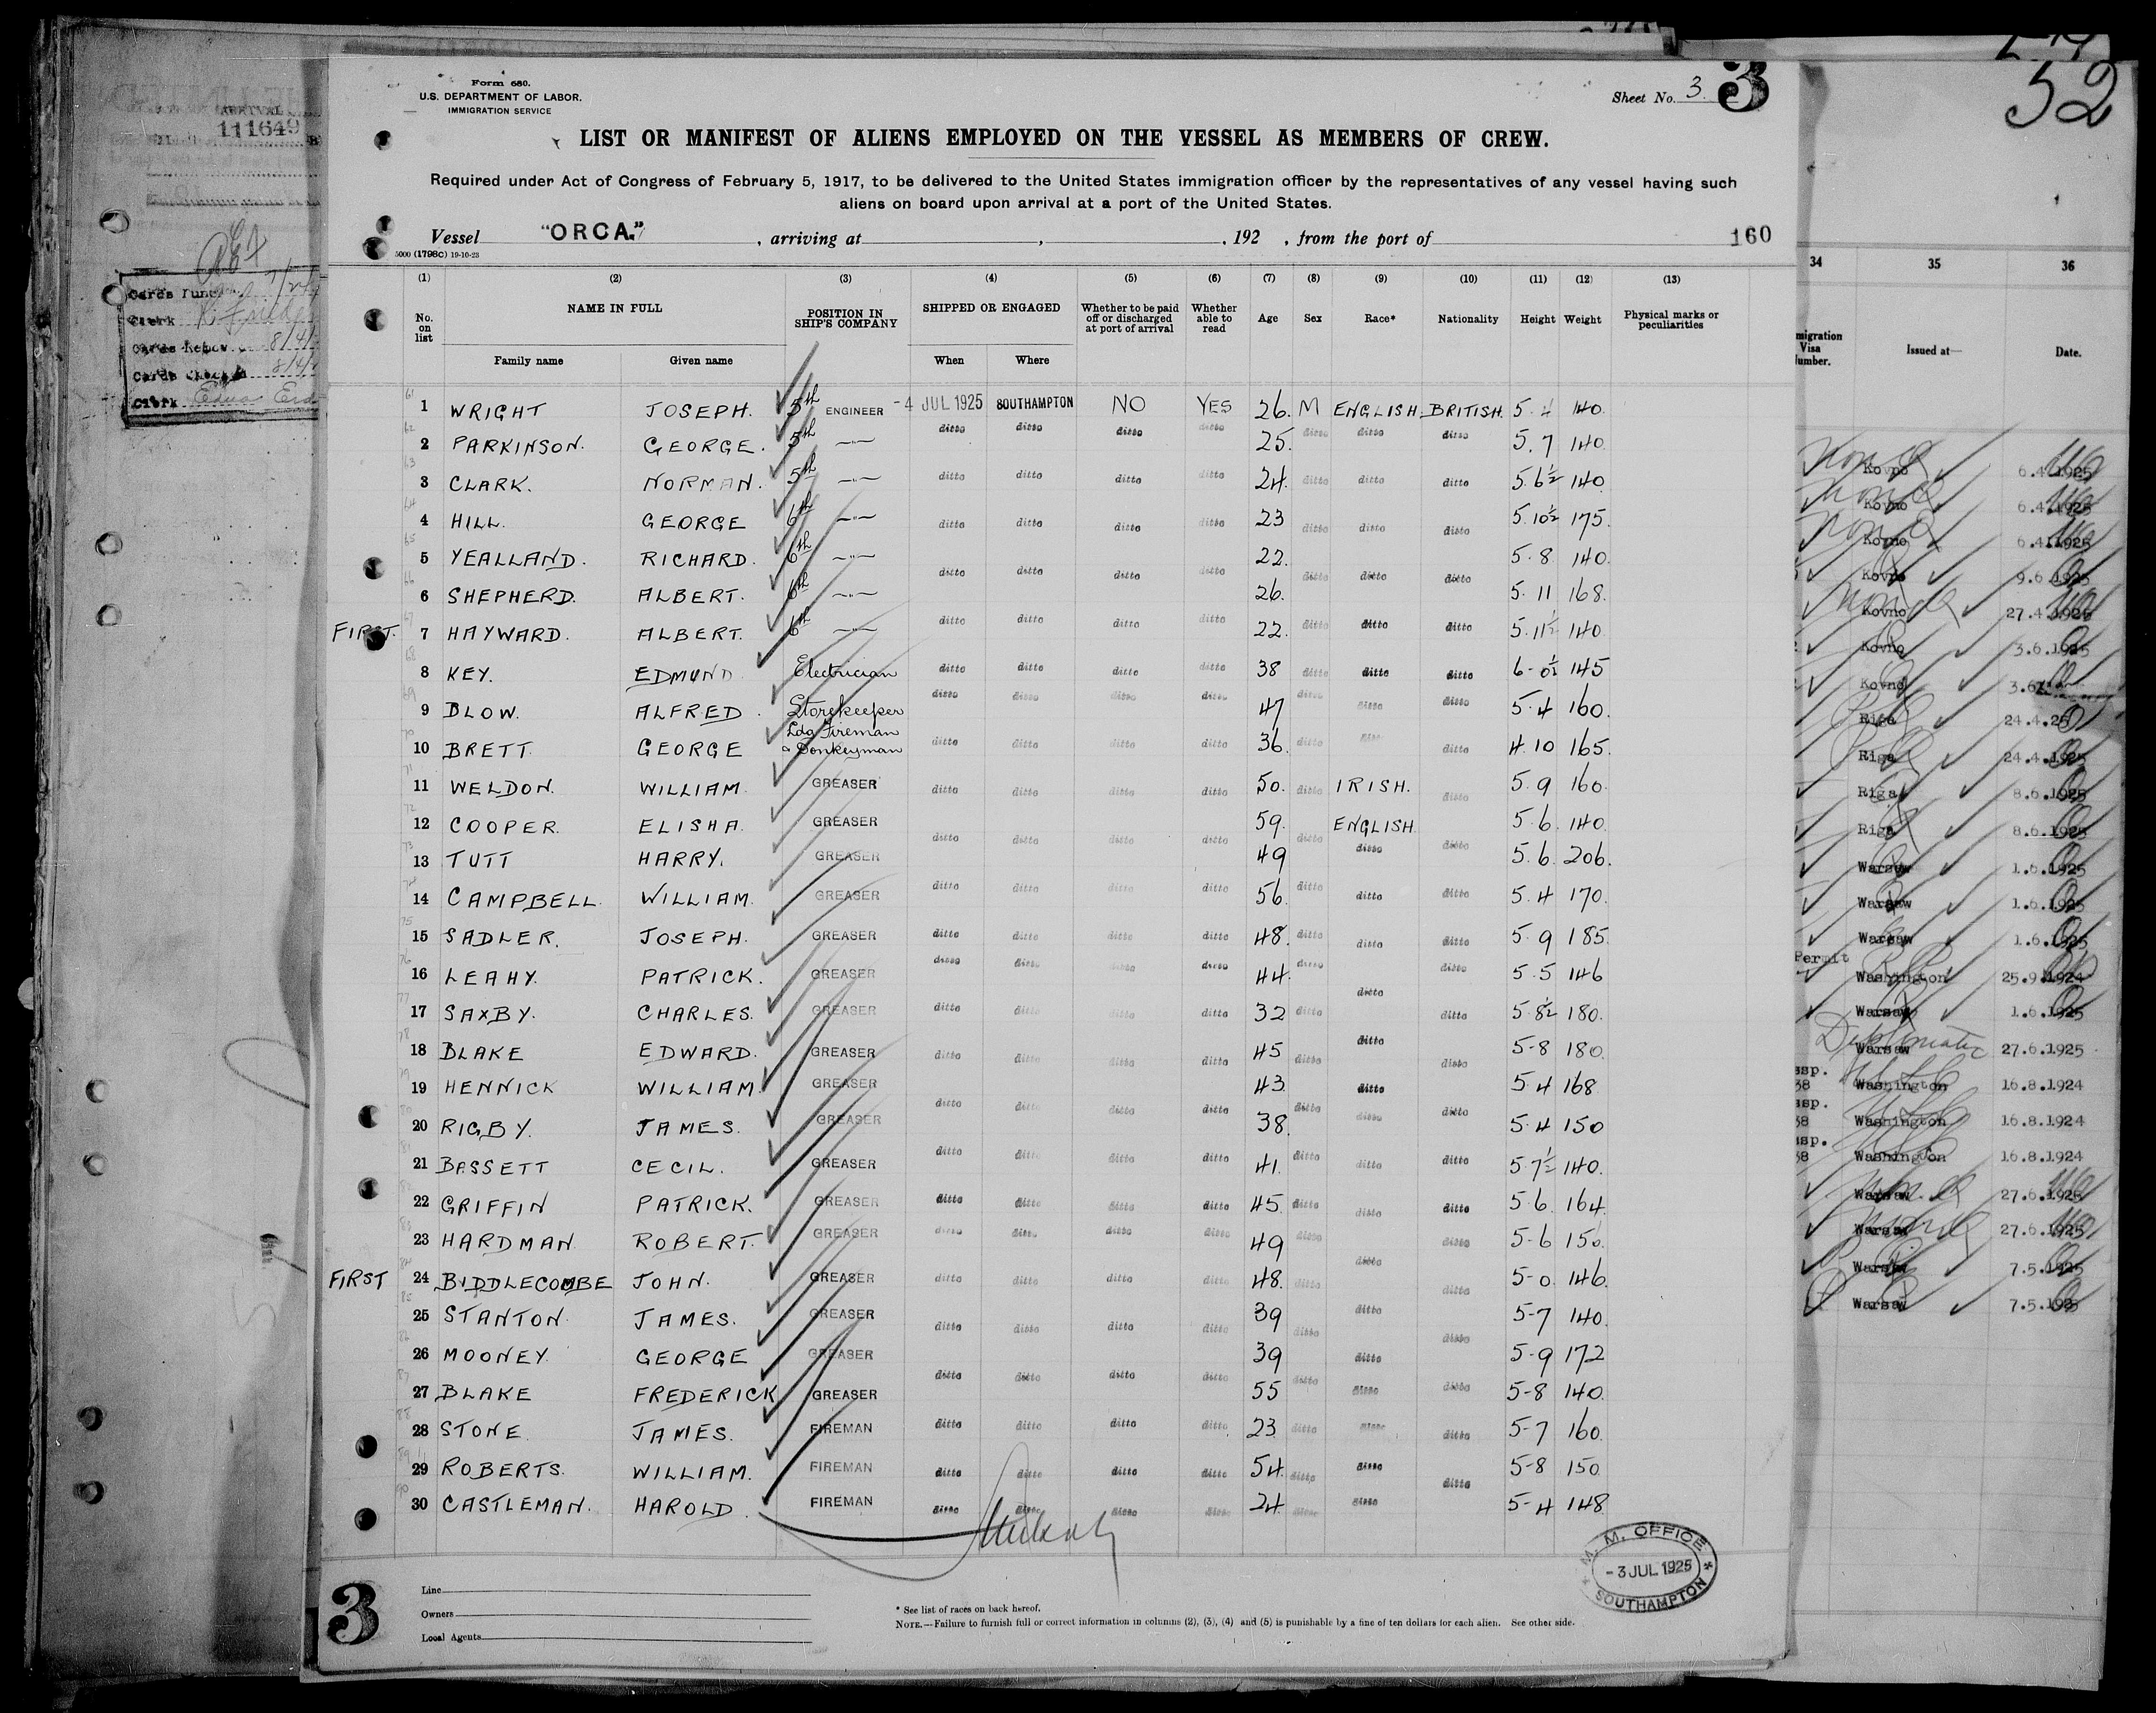 Form 680.
U.S. DEPARTMENT OF LABOR.
IMMIGRATION SERVICE
Sheet No. 3. 3
52
ARRIVAL
111649
LIST OR MANIFEST OF ALIENS EMPLOYED ON THE VESSEL AS MEMBERS OF CREW.
Required under Act of Congress of February 5, 1917, to be delivered to the United States immigration officer by the representatives of any vessel having such
aliens on board upon arrival at a port of the United States.
Vessel "ORCA." , arriving at , , 192 , from the port of 160
5000 (1798c) 19-10-23
(1) (2) (3) (4) (5) (6) (7) (8) (9) (10) (11) (12) (13)
No. on list NAME IN FULL POSITION IN SHIP'S COMPANY SHIPPED OR ENGAGED Whether to be paid off or discharged at port of arrival Whether able to read Age Sex Race* Nationality Height Weight Physical marks or peculiarities
Family name Given name When Where
1 WRIGHT JOSEPH. 5th ENGINEER -4 JUL 1925 SOUTHAMPTON NO YES 26. M ENGLISH. BRITISH. 5.4 140.
2 PARKINSON. GEORGE. 5th —"— ditto ditto ditto ditto 25. ditto ditto ditto 5.7 140.
3 CLARK. NORMAN. 5th —"— ditto ditto ditto ditto 24. ditto ditto ditto 5.6½ 140.
4 HILL. GEORGE 6th —"— ditto ditto ditto ditto 23 ditto ditto ditto 5.10½ 175.
5 YEALLAND. RICHARD. 6th —"— 22. 5.8 140.
6 SHEPHERD. ALBERT. 6th —"— ditto ditto ditto ditto 26. ditto ditto ditto 5.11 168.
FIRST. 7 HAYWARD. ALBERT. 6th —"— ditto ditto ditto ditto 22. ditto ditto ditto 5.11½ 140.
8 KEY. EDMUND. Electrician ditto ditto ditto ditto 38 ditto ditto ditto 6-0½ 145
9 BLOW. ALFRED. Storekeeper ditto ditto ditto ditto 47 ditto ditto ditto 5.4 160.
10 BRETT. GEORGE Ldg Fireman & Donkeyman ditto ditto ditto ditto 36. ditto ditto ditto 4.10 165.
11 WELDON. WILLIAM. GREASER ditto ditto ditto ditto 50. ditto IRISH. ditto 5.9 160.
12 COOPER. ELISHA. GREASER ditto ditto ditto ditto 59. ditto ENGLISH. ditto 5.6. 140.
13 TUTT HARRY. GREASER 49 ditto 5.6. 206.
14 CAMPBELL. WILLIAM. GREASER ditto ditto ditto ditto 56. ditto ditto ditto 5.4 170.
15 SADLER. JOSEPH. GREASER ditto ditto ditto ditto 48. ditto ditto ditto 5.9 185.
16 LEAHY. PATRICK. GREASER ditto ditto ditto ditto 44. ditto ditto ditto 5.5 146
17 SAXBY. CHARLES. GREASER ditto ditto ditto ditto 32 ditto ditto 5.8½ 180.
18 BLAKE EDWARD. GREASER ditto ditto ditto ditto 45 ditto ditto ditto 5-8 180.
19 HENNICK WILLIAM. GREASER 43. ditto 5.4 168.
20 RIGBY. JAMES. GREASER ditto ditto ditto ditto 38. ditto ditto ditto 5.4 150
21 BASSETT CECIL. GREASER ditto ditto ditto ditto 41. ditto ditto ditto 5.7½ 140.
22 GRIFFIN PATRICK. GREASER ditto ditto ditto ditto 45. ditto ditto ditto 5.6. 164.
23 HARDMAN. ROBERT. GREASER ditto ditto ditto ditto 49 ditto ditto ditto 5-6 150.
FIRST 24 BIDDLECOMBE JOHN. GREASER ditto ditto ditto ditto 48. ditto ditto 5-0. 146.
25 STANTON. JAMES. GREASER ditto ditto ditto ditto 39 ditto ditto ditto 5-7 140.
26 MOONEY. GEORGE GREASER 39 ditto 5-9 172
27 BLAKE FREDERICK GREASER ditto ditto ditto ditto 55 ditto ditto ditto 5-8 140.
28 STONE. JAMES. FIREMAN ditto ditto ditto ditto 23. ditto ditto ditto 5-7 160.
29 ROBERTS. WILLIAM. FIREMAN ditto ditto ditto ditto 54. ditto ditto ditto 5-8 150.
30 CASTLEMAN. HAROLD. FIREMAN ditto ditto ditto ditto 24. ditto ditto 5-4 148.
M. M. OFFICE
-3 JUL 1925
SOUTHAMPTON
3
Line
Owners
Local Agents
* See list of races on back hereof.
NOTE.—Failure to furnish full or correct information in columns (2), (3), (4) and (5) is punishable by a fine of ten dollars for each alien. See other side.
34 35 36
Visa Number. Issued at— Date.
Kovno 6.4.1925
Kovno 6.4.1925
Kovno 6.4.1925
Kovno 9.6.1925
Kovno 27.4.1925
Kovno 3.6.1925
Kovno
Riga 24.4.25
Riga 24.4.1925
Riga 8.6.1925
Riga 8.6.1925
Warsaw 1.6.1925
Warsaw 1.6.1925
Warsaw 1.6.1925
Permit Washington 25.9.1924
Warsaw 1.6.1925
Diplomatic Warsaw 27.6.1925
Washington 16.8.1924
Washington 16.8.1924
Washington 16.8.1924
Warsaw 27.6.1925
Warsaw 27.6.1925
Warsaw 7.5.1925
Warsaw 7.5.1925